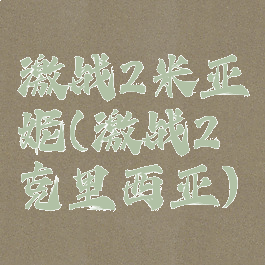 激战2米亚
妮(激战2
克里西亚)